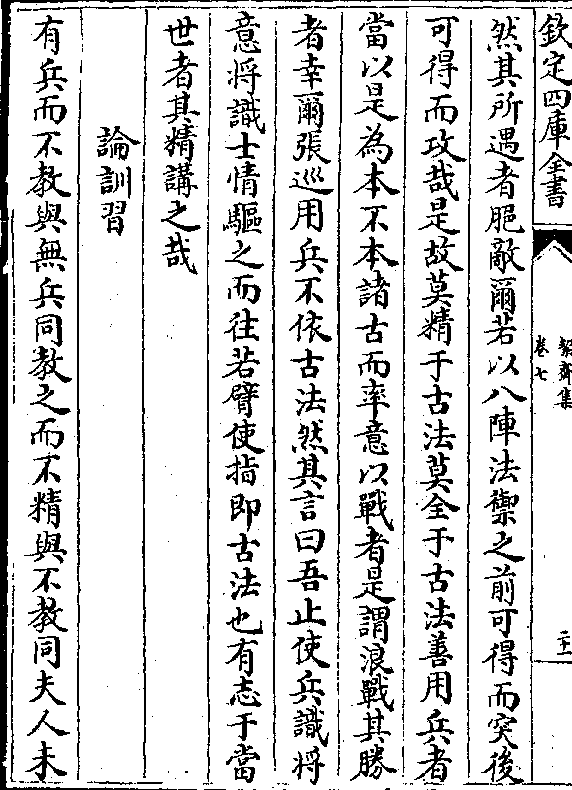 欽定四庫全書
絜齋集
卷七
二十一
然其所遇者脆敵爾若以八陣法禦之前可得而突後
可得而攻哉是故莫精于古法莫全于古法善用兵者
當以是為本不本諸古而率意以戰者是謂浪戰其勝
者幸爾張巡用兵不依古法然其言曰吾止使兵識將
意將識士情驅之而往若臂使指即古法也有志于當
世者其精講之哉
論訓習
有兵而不教與無兵同教之而不精與不教同夫人未